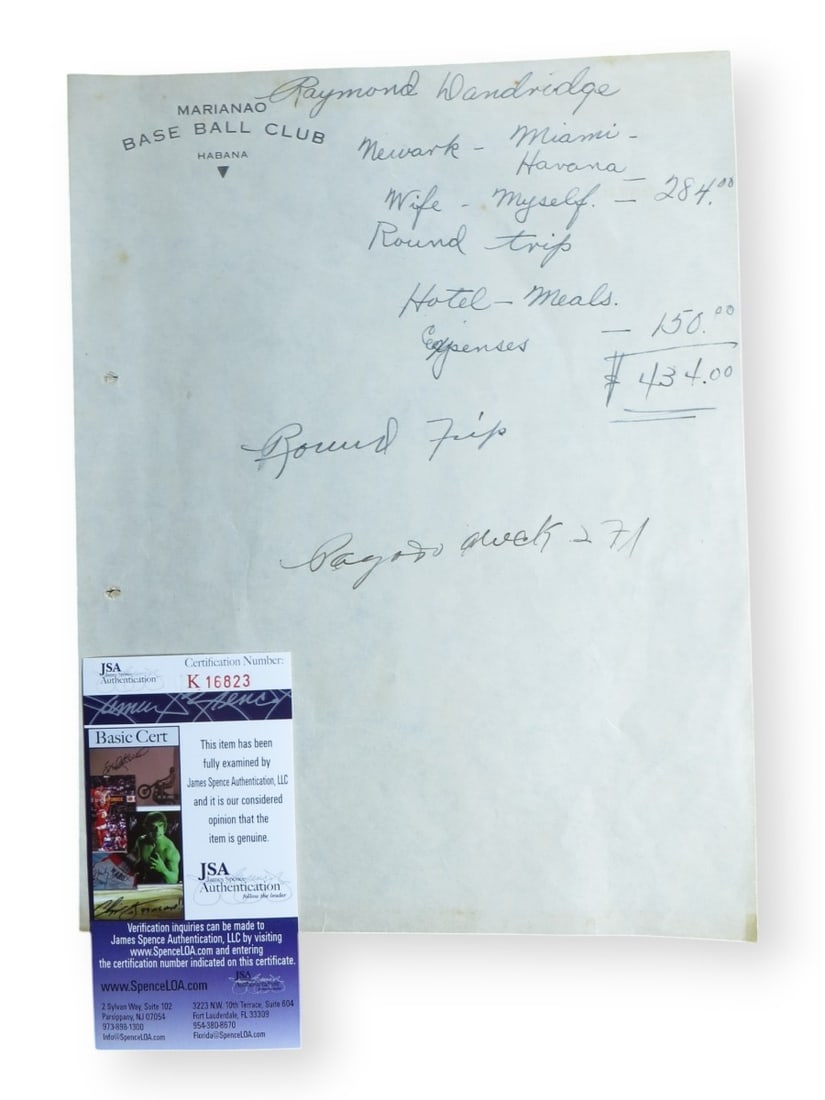 Raymond Dandridge
MARIANAO
BASE BALL CLUB
HABANA
Newark - Miami -
Havana
Wife - Myself. - 284.00
Round trip
Hotel - Meals.
Expenses - 150.00
$ 434.00
Round Trip
Pagado check 271
JSA
James Spence
Authentication
Certification Number:
K 16823
James Spence
Basic Cert
This item has been
fully examined by
James Spence Authentication, LLC
and it is our considered
opinion that the
item is genuine.
JSA
James Spence
Authentication
follow the leader
Verification inquiries can be made to
James Spence Authentication, LLC by visiting
www.SpenceLOA.com and entering
the certification number indicated on this certificate.
JSA
www.SpenceLOA.com
2 Sylvan Way, Suite 102
Parsippany, NJ 07054
973-898-1300
Info@SpenceLOA.com
3223 N.W. 10th Terrace, Suite 604
Fort Lauderdale, FL 33309
954-380-8670
Florida@SpenceLOA.com